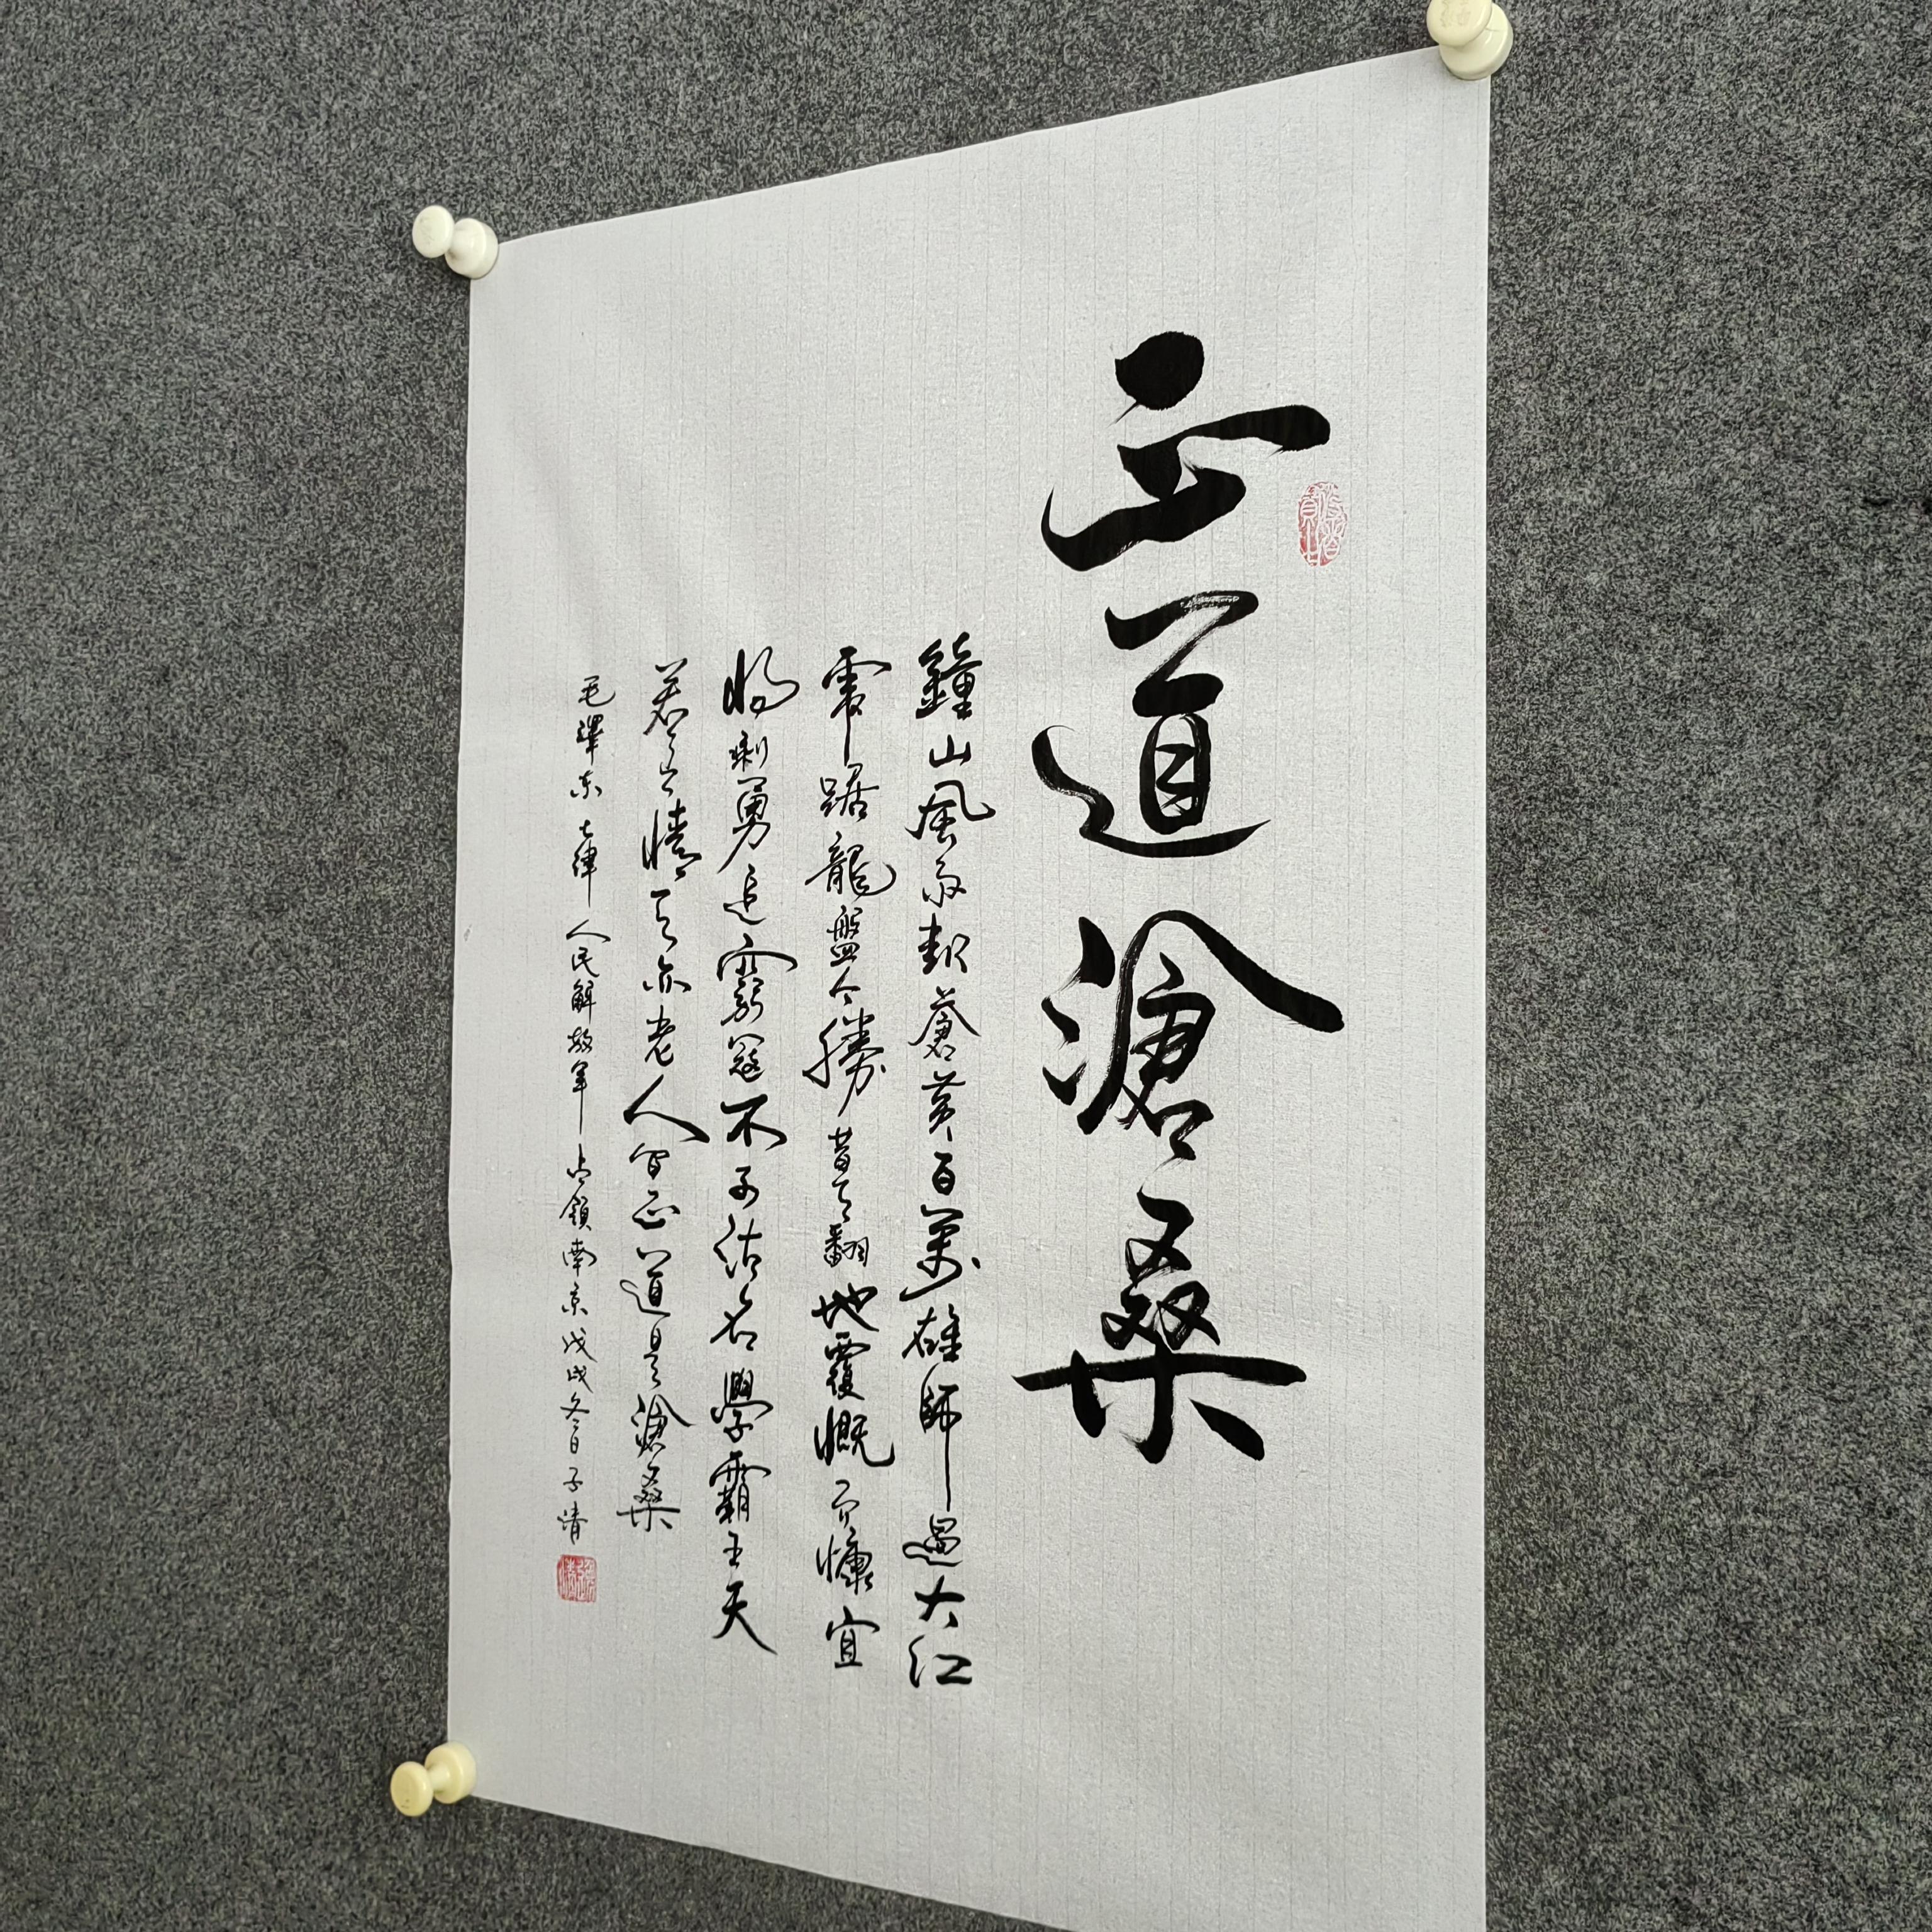 正道滄桑
鐘山風雨起蒼黃百萬雄師過大江
虎踞龍盤今勝昔天翻地覆慨而慷宜
將剩勇追窮寇不可沽名學霸王天
若有情天亦老人間正道是滄桑
毛澤東七律人民解放軍占領南京戊戌冬日子清